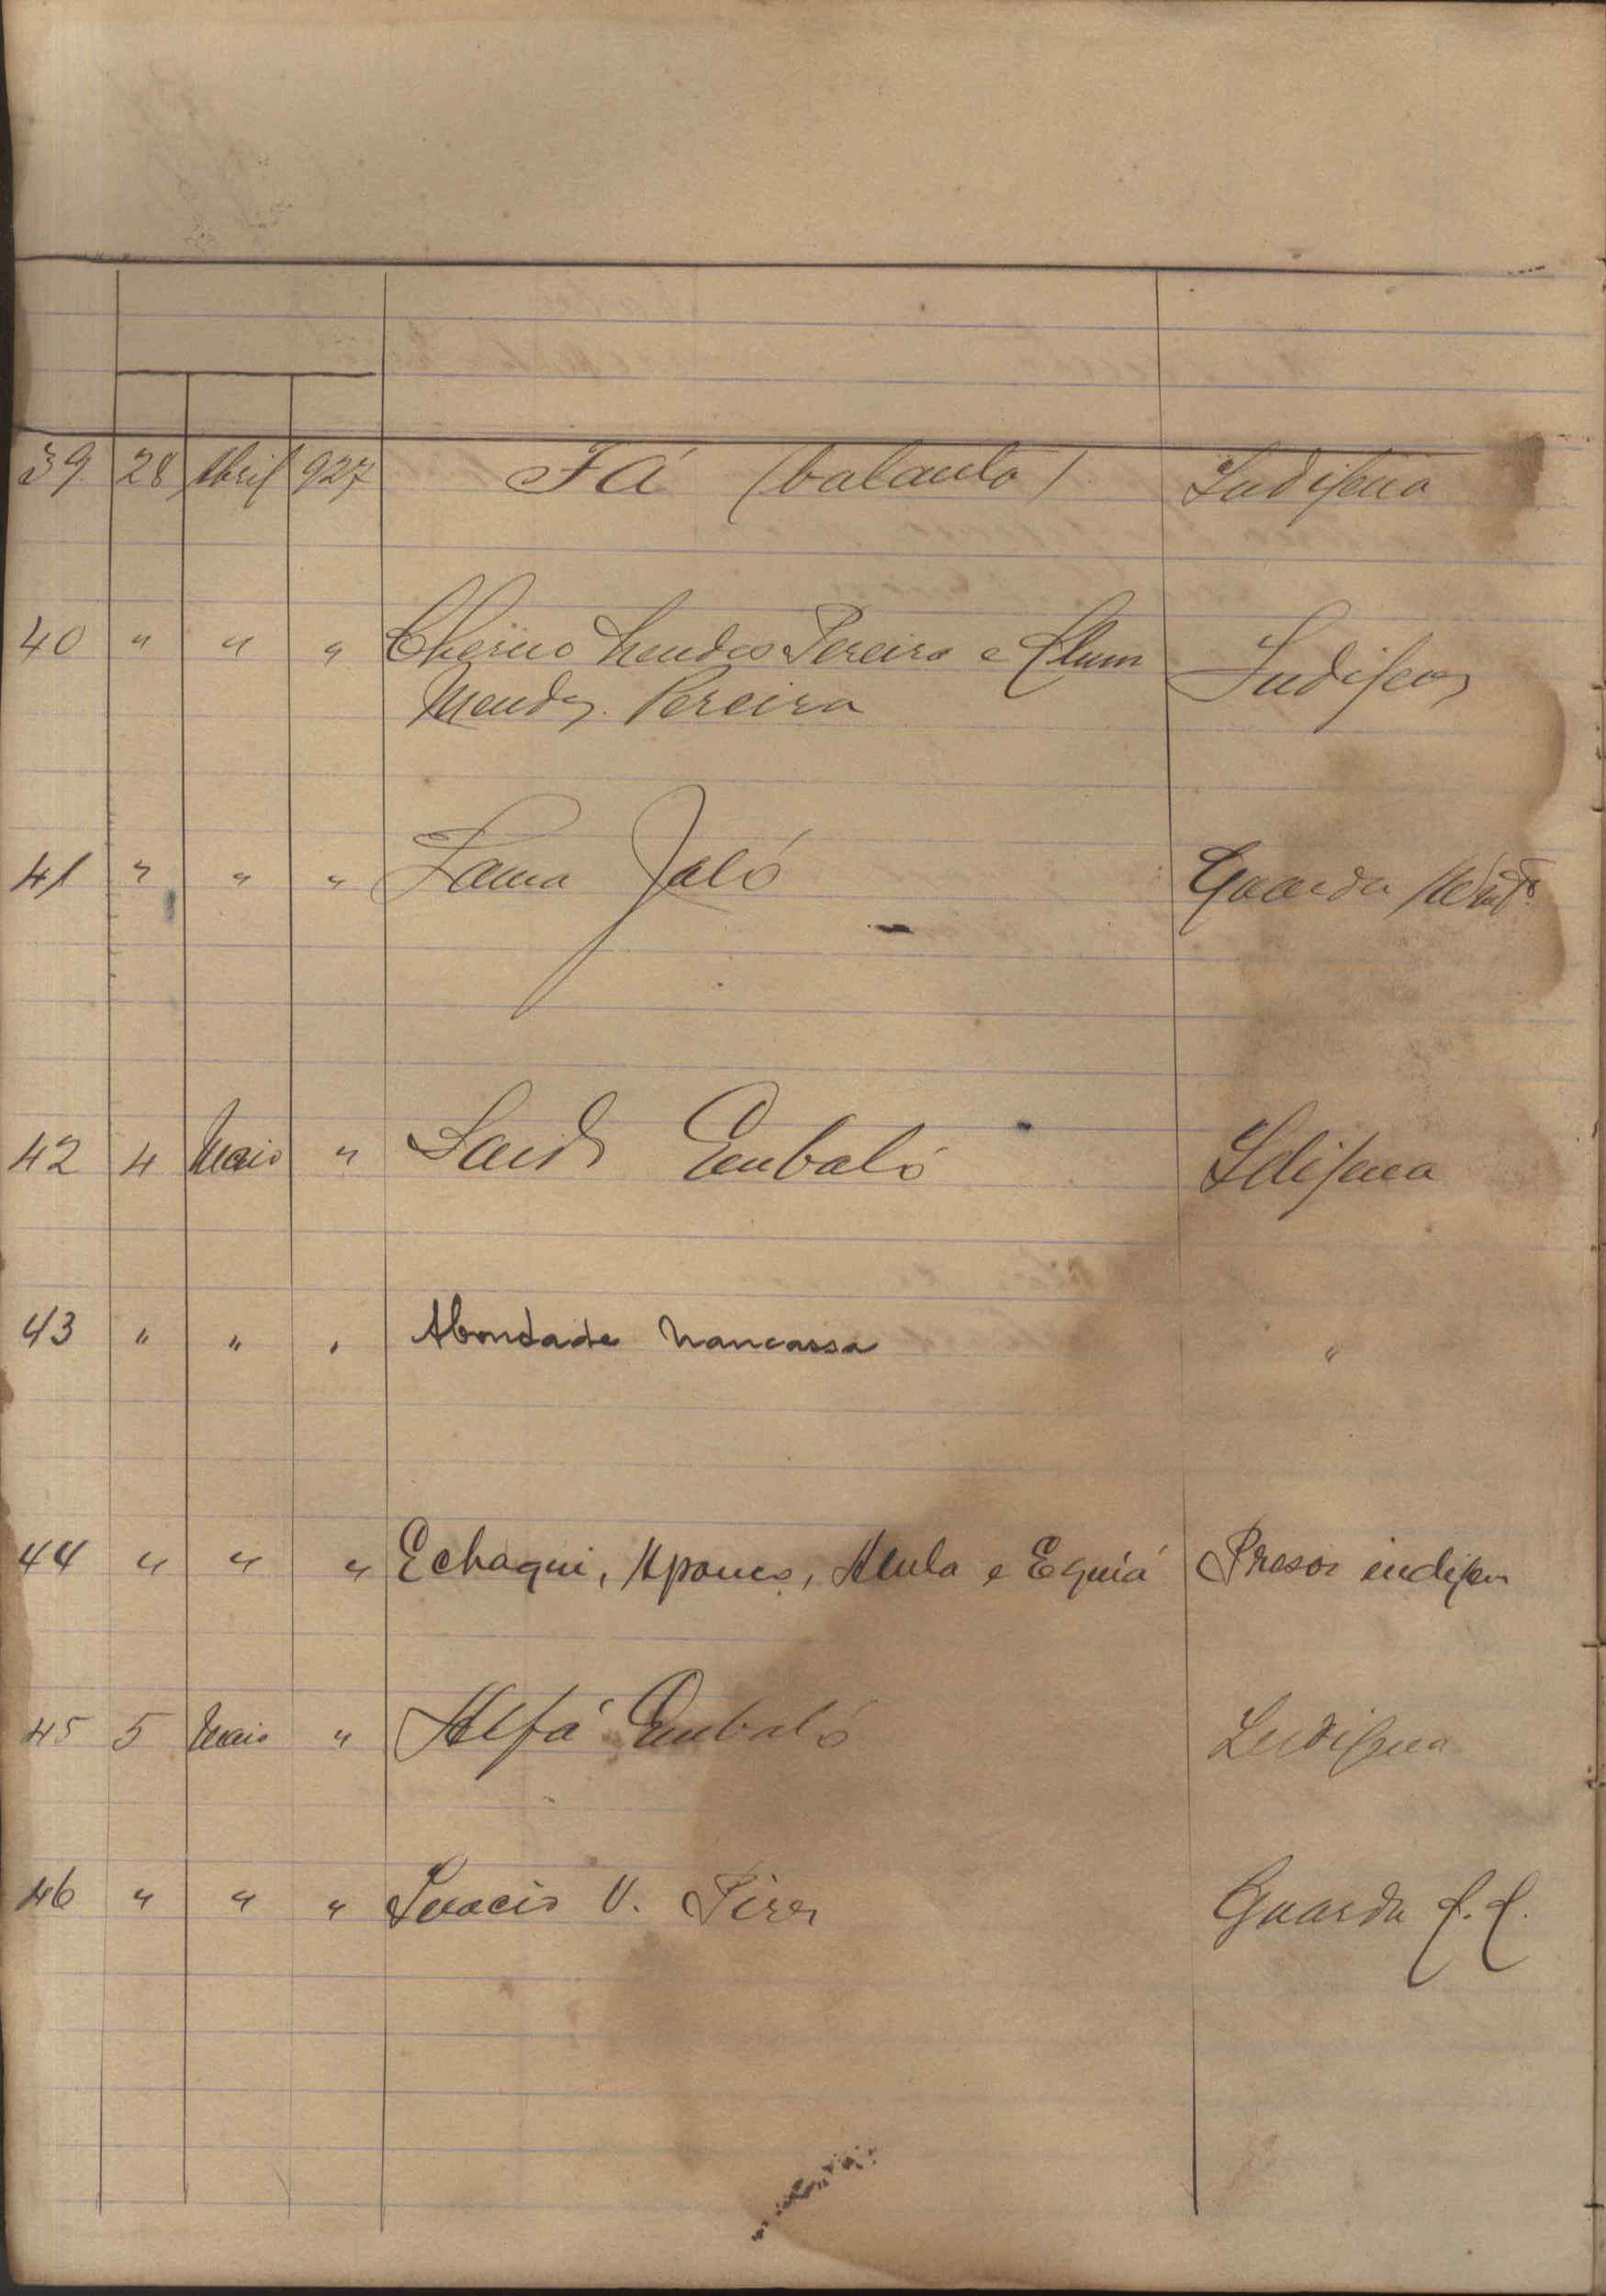 39 28 Abril 927 Fá (balanta) Indigena
40 " " " Mendes Pereira e
Mendes Pereira Indigenas
41 " " " Jaló Guarda
42 4 Maio " Embaló Idigena
43 " " " Abondade Nancassa "
44 " " " Echaqui, Apouco, e Equiá Presos indigen
45 5 Maio " Alfá Embaló Indigena
46 " " " Inacio V. Pires Guarda